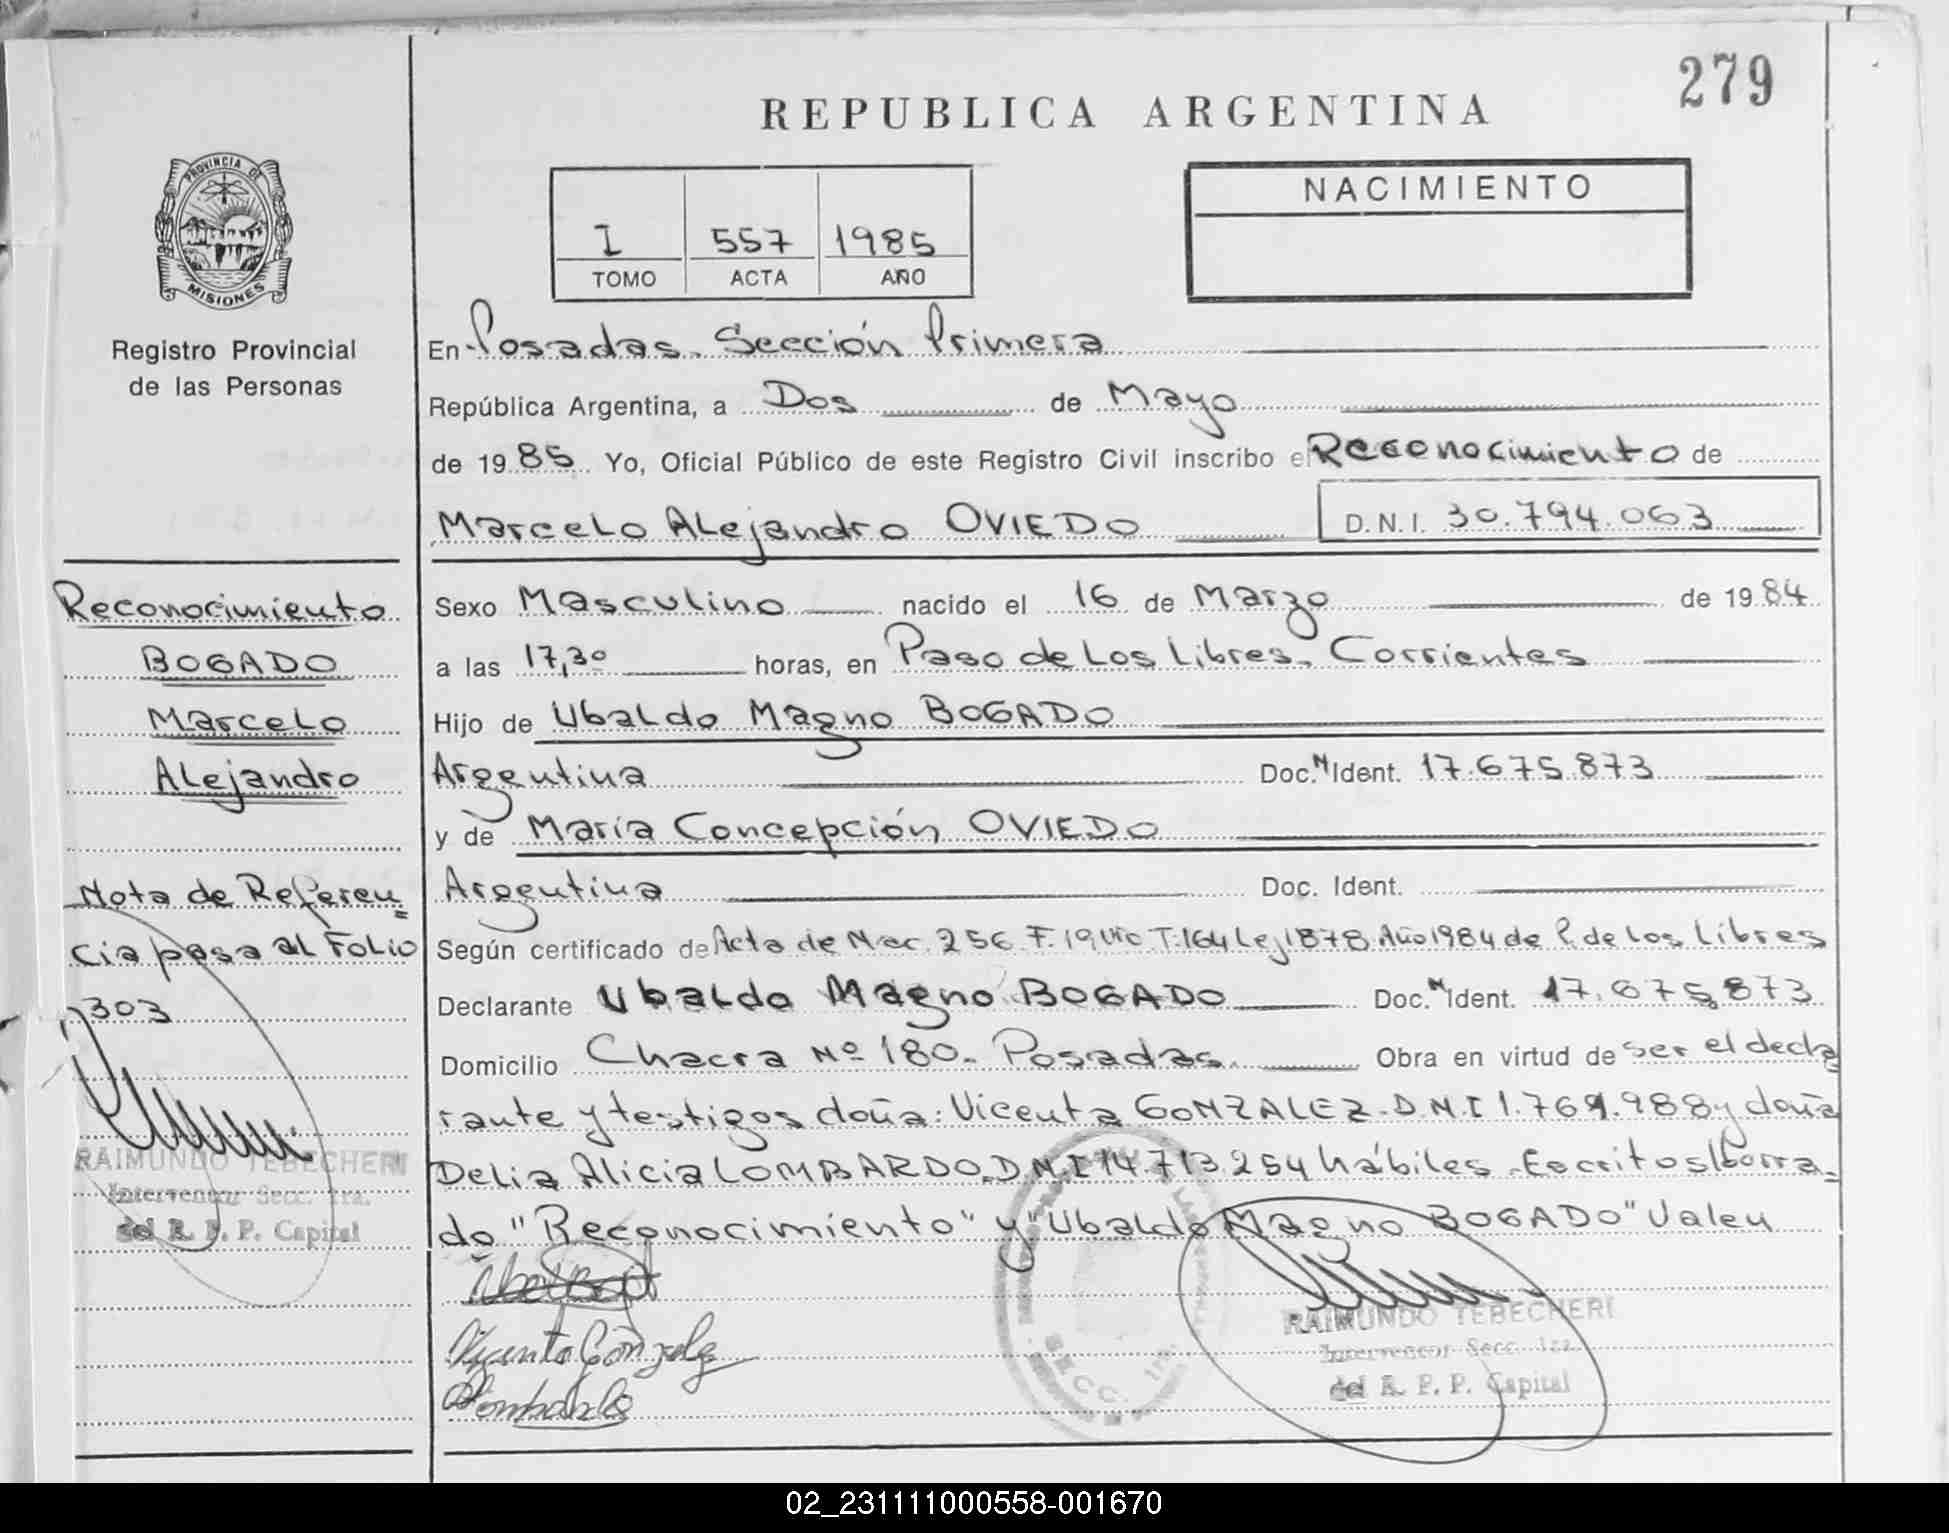 279
REPUBLICA ARGENTINA
PROVINCIA DE
MISIONES
Registro Provincial
de las Personas
I 557 1985
TOMO ACTA AÑO
NACIMIENTO
En Posadas. Sección Primera
República Argentina, a Dos de Mayo
de 1985 Yo, Oficial Público de este Registro Civil inscribo el Reconocimiento de
Marcelo Alejandro OVIEDO D.N.I. 30.794.063
Reconocimiento
BOGADO
Marcelo
Alejandro
Nota de Referen=
cia pasa al Folio
303
RAIMUNDO TEBECHERI
Interventor Secc. 1ra.
del R. P. P. Capital
Sexo Masculino nacido el 16 de Marzo de 1984
a las 17,30 horas, en Paso de Los Libres. Corrientes
Hijo de Ubaldo Magno BOGADO
Argentina Doc. N Ident. 17.675.873
y de María Concepción OVIEDO
Argentina Doc. Ident.
Según certificado de Acta de Nac. 256 F. 19 T. 164 Lej 1878 Año 1984 de P. de Los Libres
Declarante Ubaldo Magno BOGADO Doc. N Ident. 17.675.873
Domicilio Chacra Nº 180. Posadas. Obra en virtud de ser el decla
rante y testigos doña: Vicenta GONZALEZ. D.N.I 1.769.988 y doña
Delia Alicia LOMBARDO. D.N.I 14.713.254 hábiles. Escritos/borra-
do "Reconocimiento" y "Ubaldo Magno BOGADO" Valen
Vicenta Gonzalez
Lombardo
SECC. 1ra.
RAIMUNDO TEBECHERI
Interventor Secc. 1ra.
del R. P. P. Capital
02_231111000558-001670